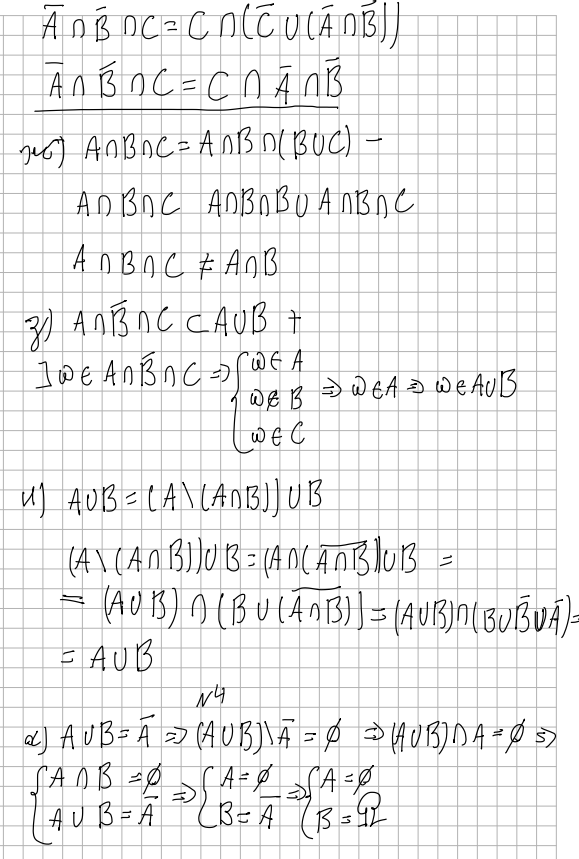 Ā ∩ B̄ ∩ C = C ∩ (C̄ ∪ (Ā ∩ B̄))
Ā ∩ B̄ ∩ C = C ∩ Ā ∩ B̄
ж) A∩B∩C = A∩B∩(B∪C) −
A∩B∩C A∩B∩B∪A∩B∩C
A∩B∩C ≠ A∩B
з) A∩B̄∩C ⊂ A∪B +
] ω∈A∩B̄∩C ⇒ { ω∈A
ω∉B
ω∈C ⇒ ω∈A ⇒ ω∈A∪B
и) A∪B = (A\(A∩B))∪B
(A\(A∩B))∪B = (A∩(\overline{A∩B}))∪B =
= (A∪B)∩(B∪(\overline{A∩B})) = (A∪B)∩(B∪B̄∪Ā) =
= A∪B
N4
a) A∪B = Ā ⇒ (A∪B)\Ā = ∅ ⇒ (A∪B)∩A = ∅ ⇒
{ A∩B = ∅ ⇒ { A = ∅ ⇒ { A = ∅
A∪B = Ā B = Ā B = Ω